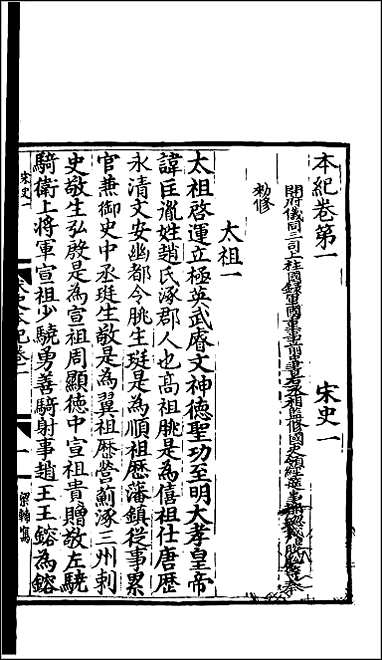 本紀卷第一 宋史一
開府儀同三司上柱國錄軍國重事前中書右丞相監修國史領經筵事都總裁臣脫脫等奉
勑修
太祖一
太祖啓運立極英武睿文神德聖功至明大孝皇帝
諱匡胤姓趙氏涿郡人也高祖朓是為僖祖仕唐歷
永清文安幽都令朓生珽是為順祖歷藩鎮從事累
官兼御史中丞珽生敬是為翼祖歷營薊涿三州刺
史敬生弘殷是為宣祖周顯德中宣祖貴贈敬左驍
騎衛上將軍宣祖少驍勇善騎射事趙王王鎔為鎔
宋史一